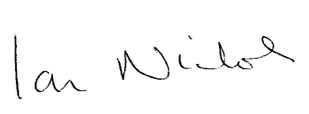 Ian Nichol